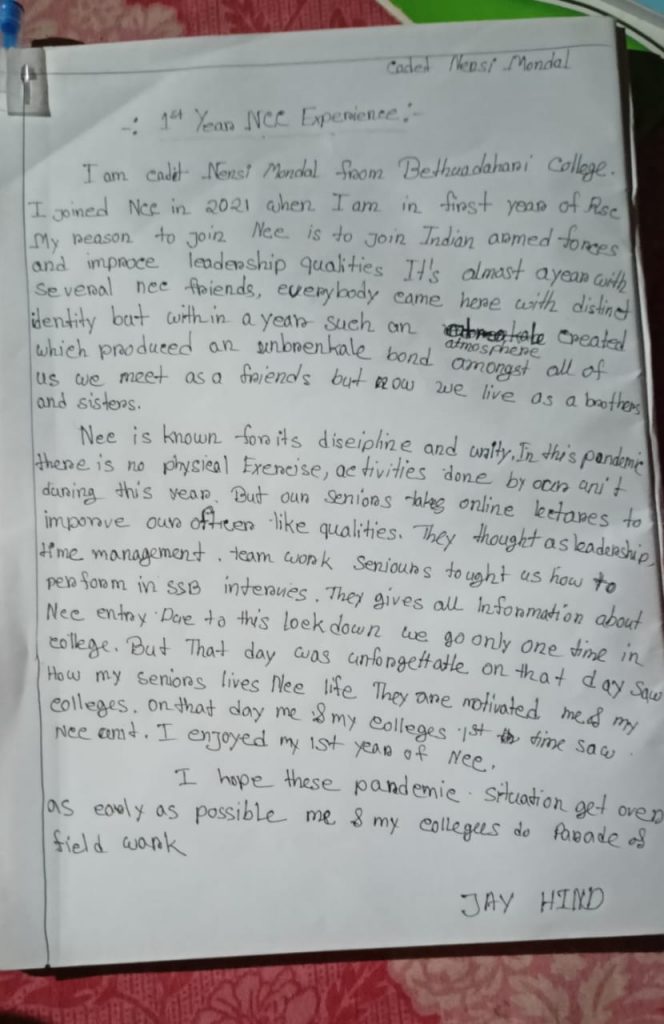 Cadet Nensi Mondal
-: 1st Year NCC Experience:-
I am cadit Nensi Mondal from Bethuadahari College.
I joined Ncc in 2021 when I am in first year of Bsc
My reason to join Ncc is to join Indian armed forces
and improce leadership qualities It's almost a year with
several ncc friends, everybody came here with distinct
identity but within a year such an atmosphere created
which produced an unbrenkale bond amongst all of
us we meet as a friends but now we live as a brothers
and sisters.
Ncc is known for its discipline and unity. In this pandemic
there is no physical Exercise, activities done by our ani't
during this year. But our seniors takes online lectares to
imporve our officer like qualities. They thought as leadership,
time management. team work seniours tought us how to
perform in SSB intervies. They gives all Information about
Ncc entry. Due to this lockdown we go only one time in
college. But That day was unforgettatle on that day saw
How my seniors lives Ncc life They are motivated me & my
colleges. on that day me & my colleges 1st time saw
Ncc amt. I enjoyed my 1st year of Ncc.
I hope these pandemic. situation get over
as eavly as possible me & my collegees do Parade &
field wark
JAY HIND